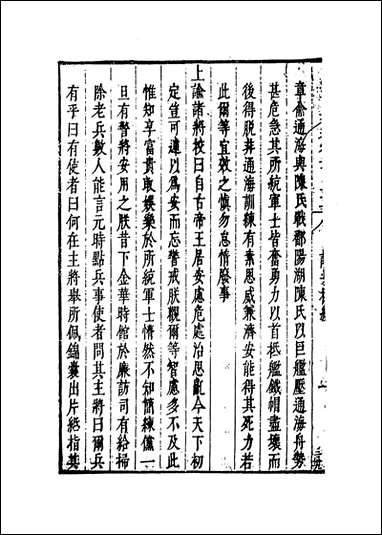 章俞通海與陳氏戰鄱陽湖陳氏以巨艦壓通海舟勢
甚危急其所統軍士皆奮勇力以首抵艦鐵帽盡壞而
後得脫葬通海訓練有素恩威兼濟安能得其死力若
此爾等宜效之慎勿怠惰廢事
上諭諸將校曰自古帝王居安慮危處治思亂今天下初
定豈可遽以為安而忘警戒朕觀爾等智慮多不及此
惟知享富貴取娛樂於所統軍士懵然不知簡練儻一
旦有警將安用之朕昔下金華時館於廉訪司有給掃
除老兵數人能言元時點兵事使者問其主將曰爾兵
有乎曰有使者曰何在主將舉所佩錦囊出片紙指其